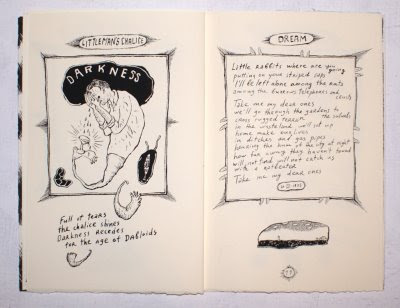 LITTLEMAN'S CHALICE
DARKNESS
Full of tears
the chalice shines
Darkness Recedes
for the age of Dabloids
DREAM
Little Rabbits where are you going
putting on your striped caps
I'll be left alone among the
among the telephones and
Take me my dear ones
we'll go through the gardens to
cross rugged terrain the suburbs
in the wasteland we'll set up
home make ourselves
in ditches and gas pipes
hearing the hum of the city at night
how fun swing they haven't found
will not find will not catch us
with a
Take me my dear ones